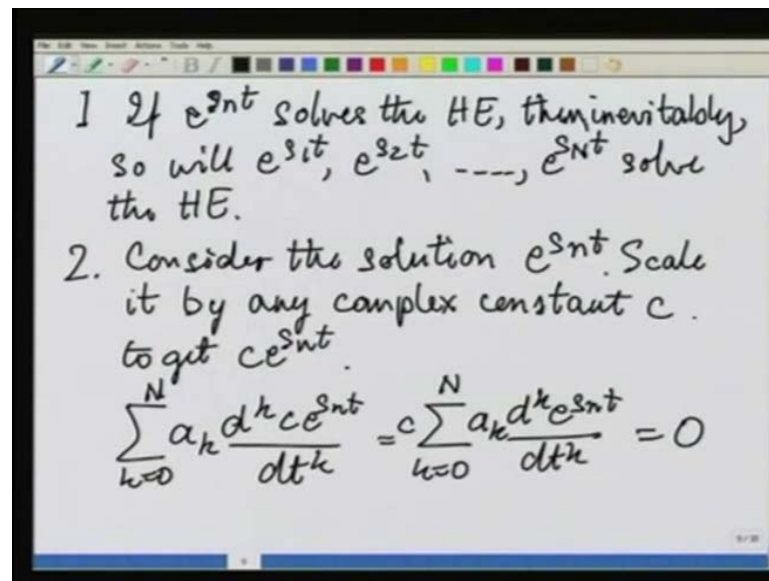 File Edit View Insert Actions Tools Help
1 If e^{s_n t} solves the HE, then inevitably,
so will e^{s_1 t}, e^{s_2 t}, ----, e^{s_N t} solve
the HE.
2. Consider the solution e^{s_n t}. Scale
it by any complex constant c.
to get ce^{s_n t}.
\sum_{k=0}^{N} a_k \frac{d^k ce^{s_n t}}{dt^k} = c \sum_{k=0}^{N} a_k \frac{d^k e^{s_n t}}{dt^k} = 0